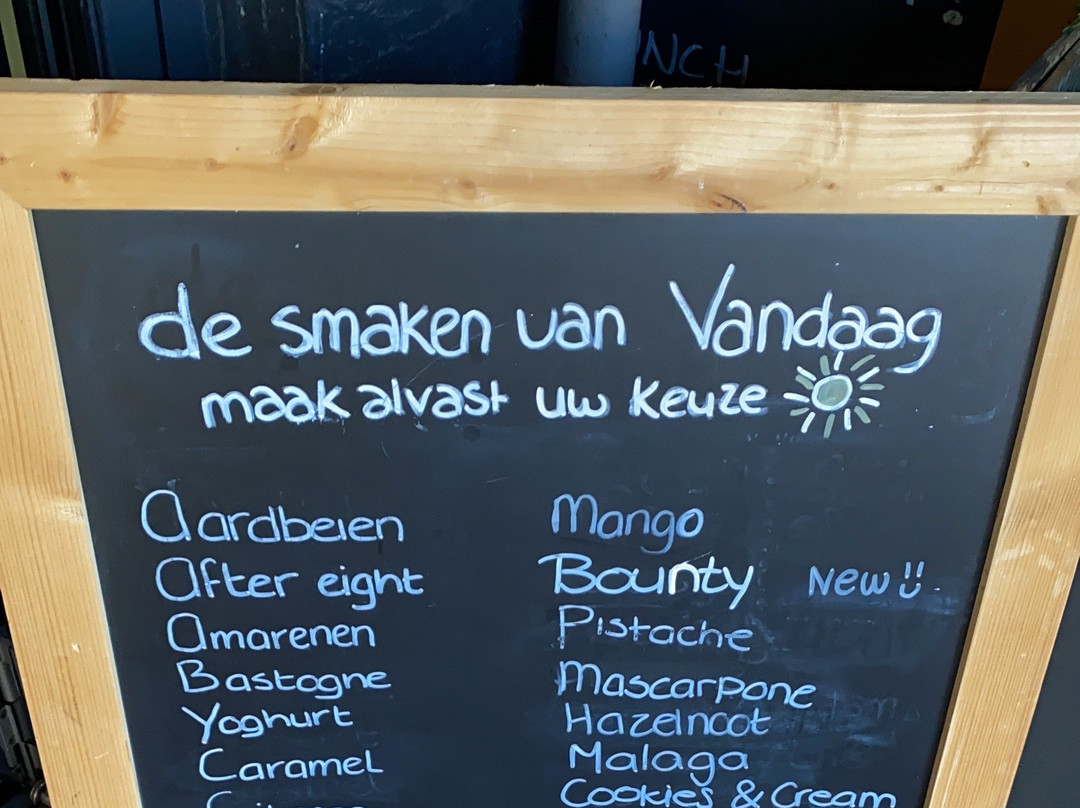 NCH
de smaken van Vandaag
maak alvast uw keuze
Aardbeien
After eight
Amarenen
Bastogne
Yoghurt
Caramel
Mango
Bounty New!!
Pistache
Mascarpone
Hazelnoot
Malaga
Cookies & Cream